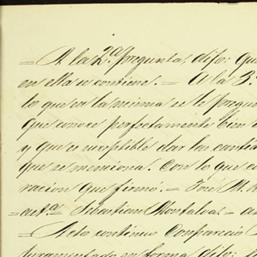 = A la 2.ª pregunta, dijo: Que
en ella se contiene. = A la 3.
lo que en la misma se le pregun
Que conoce perfectamente
y que es susceptible dar las
que se menciona. Con lo que
racion que firmó. = José M. R
= acta = Sebastian Montalvo = a
= Acto continuo Compareció
juramentado en forma dijo: